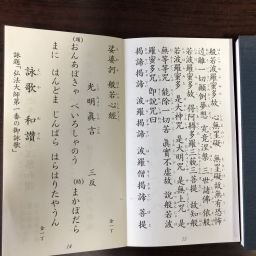 心無罣礙 無罣礙故 無有恐怖
遠離一切顛倒夢想 究竟涅槃 三世諸佛 依般
若波羅蜜多故 得阿耨多羅三藐三菩提 故知般
若波羅蜜多 是大神咒 是大明咒 是無上咒 是
無等等咒 能除一切苦 眞實不虛故 說般若波
羅蜜多咒 即說咒曰
揭諦揭諦 波羅揭諦 波羅僧揭諦 菩提
娑婆訶 般若心經
光明眞言 三反
おんあぼきゃ べいろしゃのう (助)まかぼだら
まに はんどま じんばら はらはりたやうん
詠歌 和讃
詠題「弘法大師第一番の御詠歌」
14